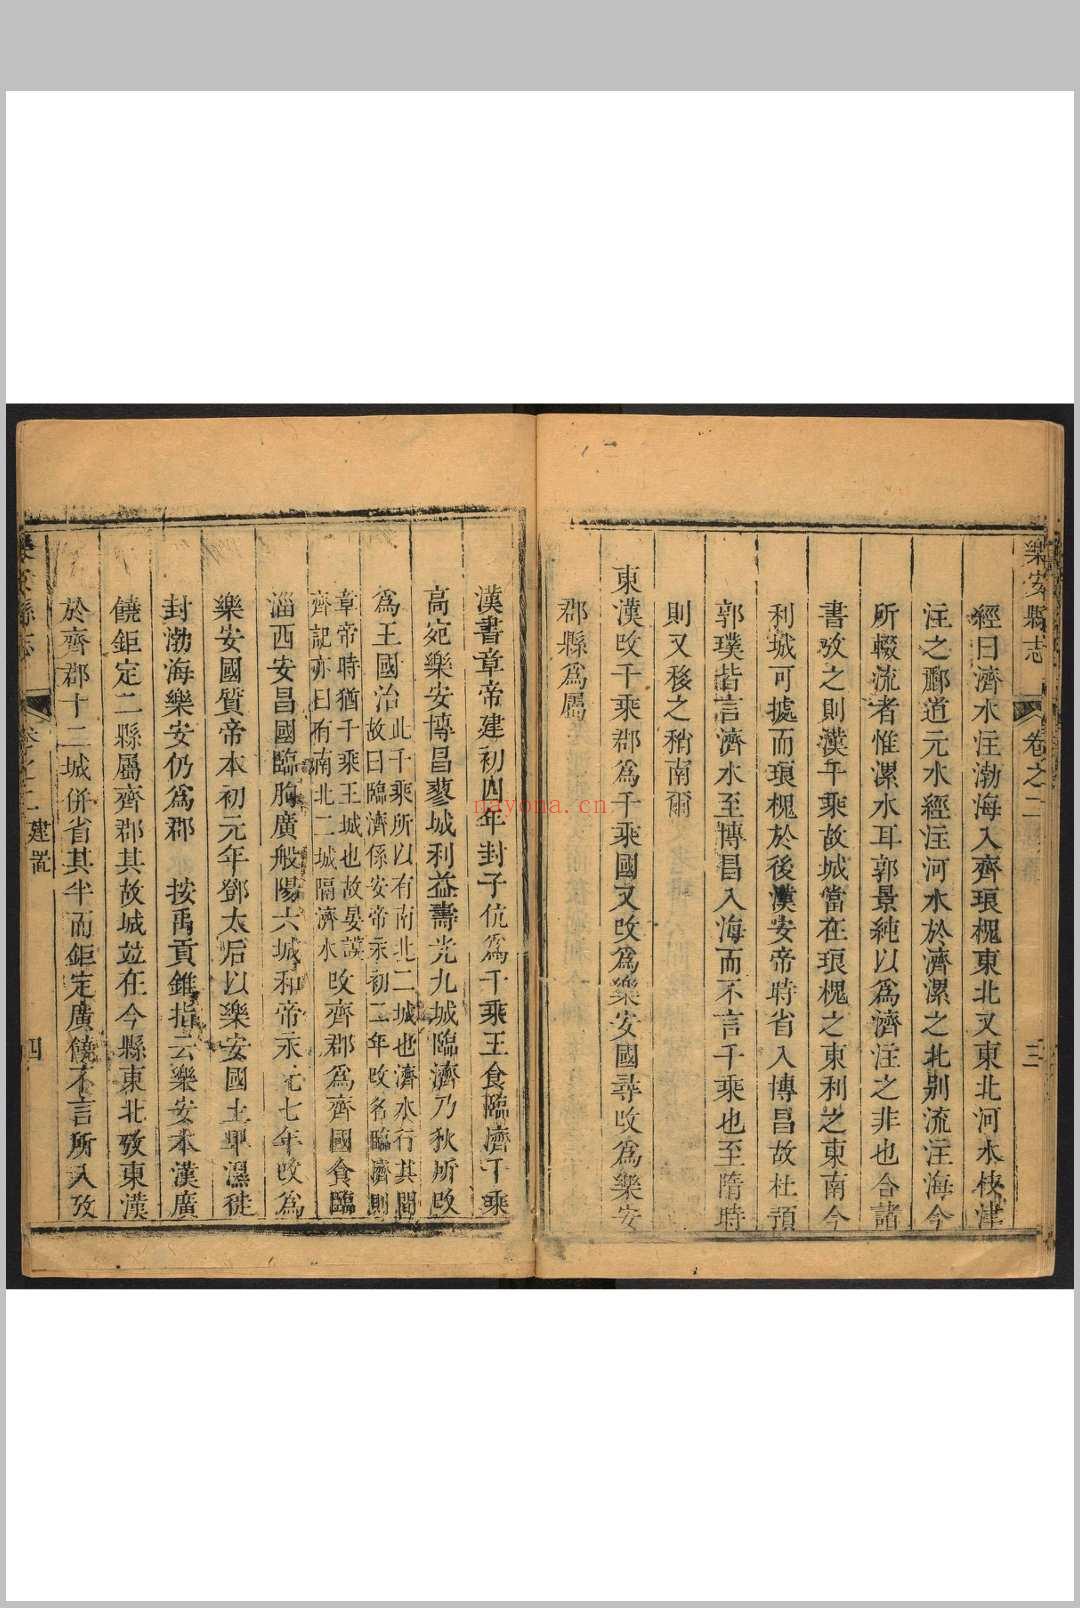 樂安縣志
卷之二
三
經曰濟水注渤海入齊琅槐東北又東北河水枝津
注之酈道元水經注河水於濟漯之北别流注海今
所輟流者惟漯水耳郭景純以爲濟注之非也合諸
書攷之則漢千乘故城當在琅槐之東利之東南今
利城可據而琅槐於後漢安帝時省入博昌故杜預
郭璞皆言濟水至博昌入海而不言千乘也至隋時
則又移之稍南爾
東漢改千乘郡爲千乘國又改爲樂安國尋改爲樂安
郡縣爲屬
漢書章帝建初四年封子伉爲千乘王食臨濟千乘
高宛樂安博昌蓼城利益壽光九城臨濟乃狄所改
爲王國治此千乘所以有南北二城也濟水行其間
故曰臨濟係安帝永初二年改名臨濟則
章帝時猶千乘王城也故晏謨
齊記亦曰有南北二城隔濟水改齊郡爲齊國食臨
淄西安昌國臨朐廣般陽六城和帝永元七年改爲
樂安國質帝本初元年鄧太后以樂安國土卑濕徙
封渤海樂安仍爲郡 按禹貢錐指云樂安本漢廣
饒鉅定二縣屬齊郡其故城並在今縣東北攷東漢
於齊郡十二城併省其半而鉅定廣饒不言所入攷
樂安縣志
卷之二
建置
四
nayona.cn